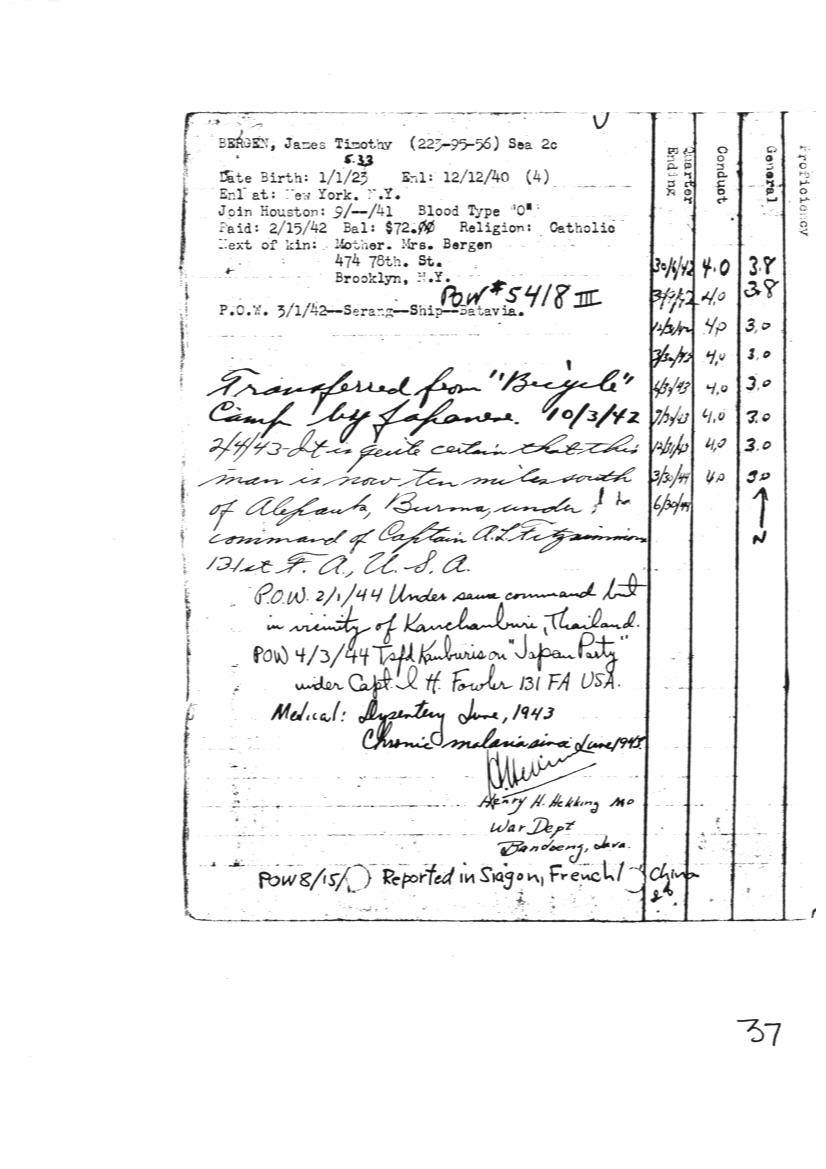 BERGEN, James Timothy (223-95-56) Sea 2c
5.33
Date Birth: 1/1/23 Enl: 12/12/40 (4)
Enl at: New York. N.Y.
Join Houston: 9/--/41 Blood Type "O":
Paid: 2/15/42 Bal: $72.00 Religion: Catholic
Next of kin: Mother. Mrs. Bergen
474 78th. St.
Brooklyn, N.Y.
POW #5418 III
P.O.W. 3/1/42--Serang--Ship--Batavia.
Transferred from "Bicycle"
Camp by Japanese. 10/3/42
2/4/43-It is quite certain that this
man is now ten miles south
of Alepauk, Burma, under
command of Captain A.L. Fitzsimmons
131st F. A., U. S. A.
P.O.W. 2/1/44 Under same command but
in vicinity of Kanchanburi, Thailand.
POW 4/3/44 Tsfd Kanburi on "Japan Party"
under Capt. I H. Fowler 131 FA USA.
Medical: Dysentery June, 1943
Chronic malaria since June 1943
Henry H. Hekking MD
War Dept
Bandoeng, Java.
POW 8/15/ Reported in Siagon, French I China
Quarter Ending
Conduct
General
Proficiency
30/6/42 4.0 3.8
4.0 3.8
4.0 3.0
4.0 3.0
4.0 3.0
4.0 3.0
12/31/43 4.0 3.0
3/30/44 4.0 3.0
6/30/44
N
37